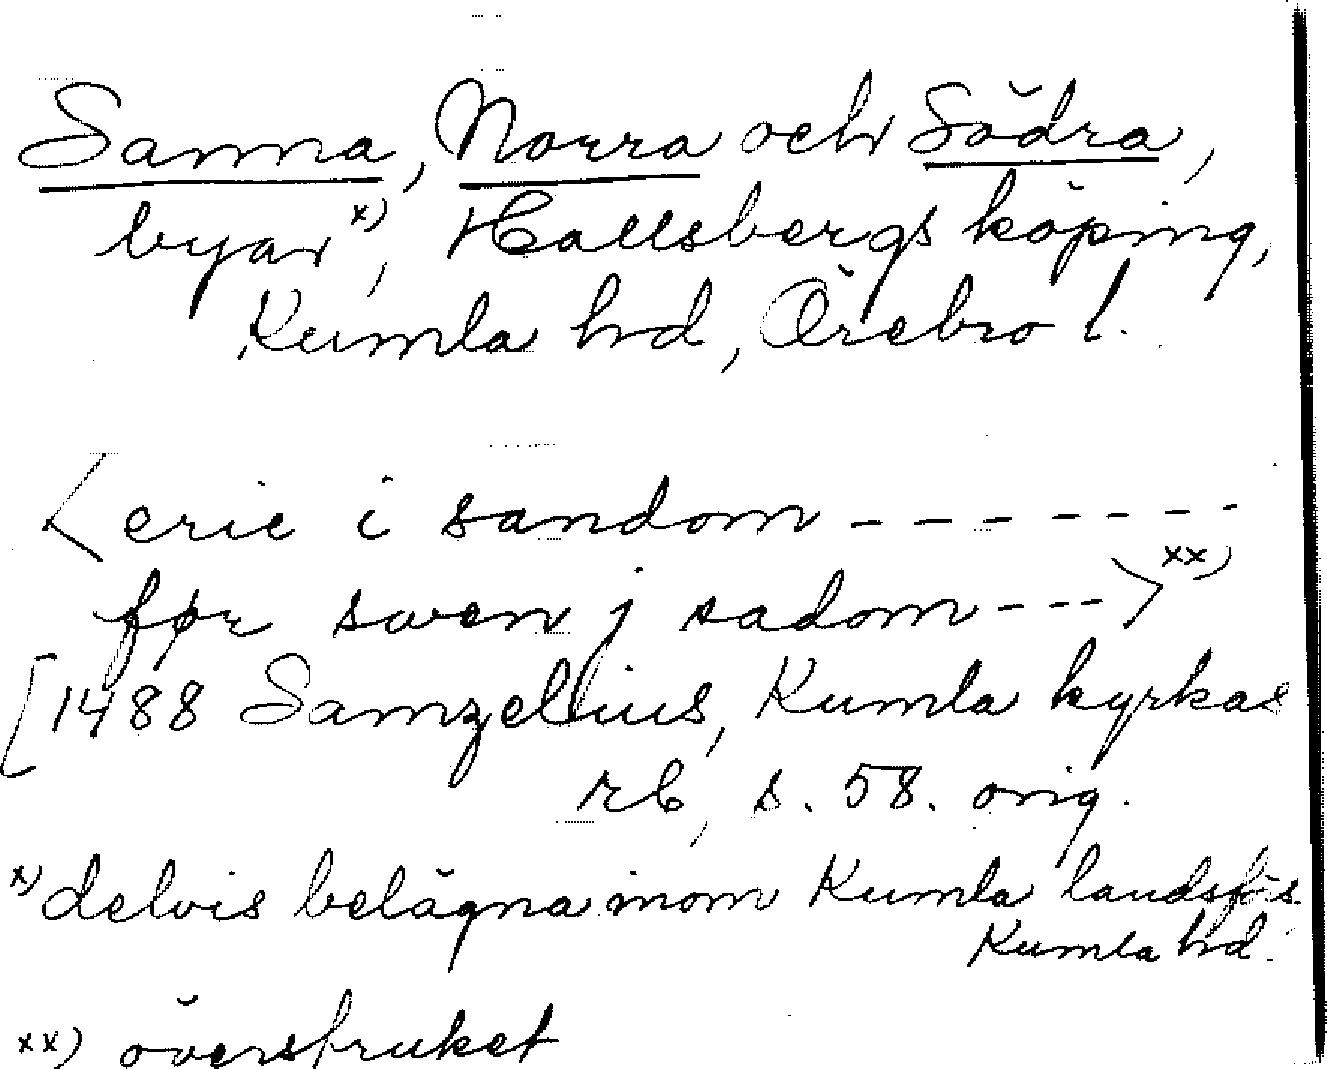 Sanna, Norra och Södra,
byar x), Hallsbergs köping,
Kumla hd, Örebro l.
< eric i sandom - - - - - - -
før swen j sadom - - - > xx)
[1488 Samzelius, Kumla kyrkas
rb, s. 58. orig.
x) delvis belägna inom Kumla landsförs.
Kumla hd.
xx) överstruket